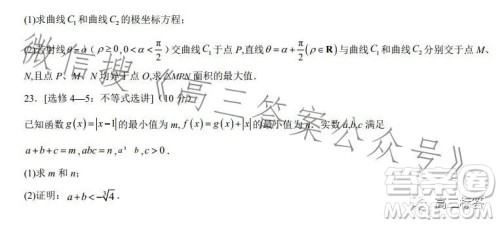 (1)求曲线C₁和曲线C₂的极坐标方程;
(2)若射线θ=α(ρ≥0,0<α<π/2)交曲线C₁于点P,直线θ=α+π/2(ρ∈R)与曲线C₁和曲线C₂分别交于点M、
N,且点P、M、N均异于点O,求△MPN面积的最大值.
23. [选修4—5:不等式选讲](10分)
已知函数g(x)=|x-1|的最小值为m,f(x)=g(x)+|x|的最小值为n,实数a,b,c满足
a+b<c=m,abc=n,a b,c>0.
(1)求m和n;
(2)证明:a+b<∛4.
微信搜《高三答案公众号》
答案圈